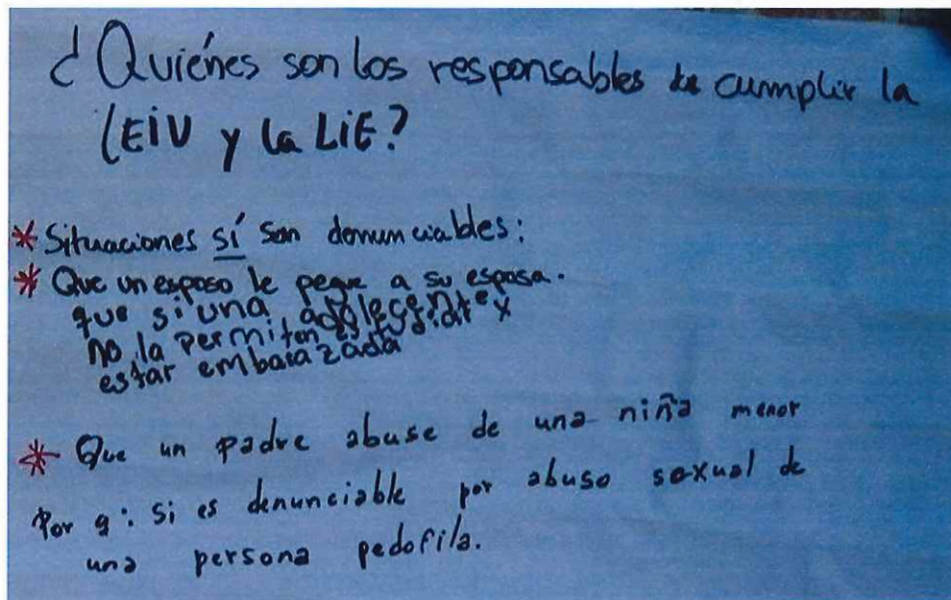 ¿Quiénes son los responsables de cumplir la
LEIV y la LIE?
* Situaciones sí son denunciables:
* Que un esposo le pegue a su esposa.
que si una adolecente
no la permiten estudiar x
estar embarazada
* Que un padre abuse de una niña menor
Por q: si es denunciable por abuso sexual de
una persona pedofila.